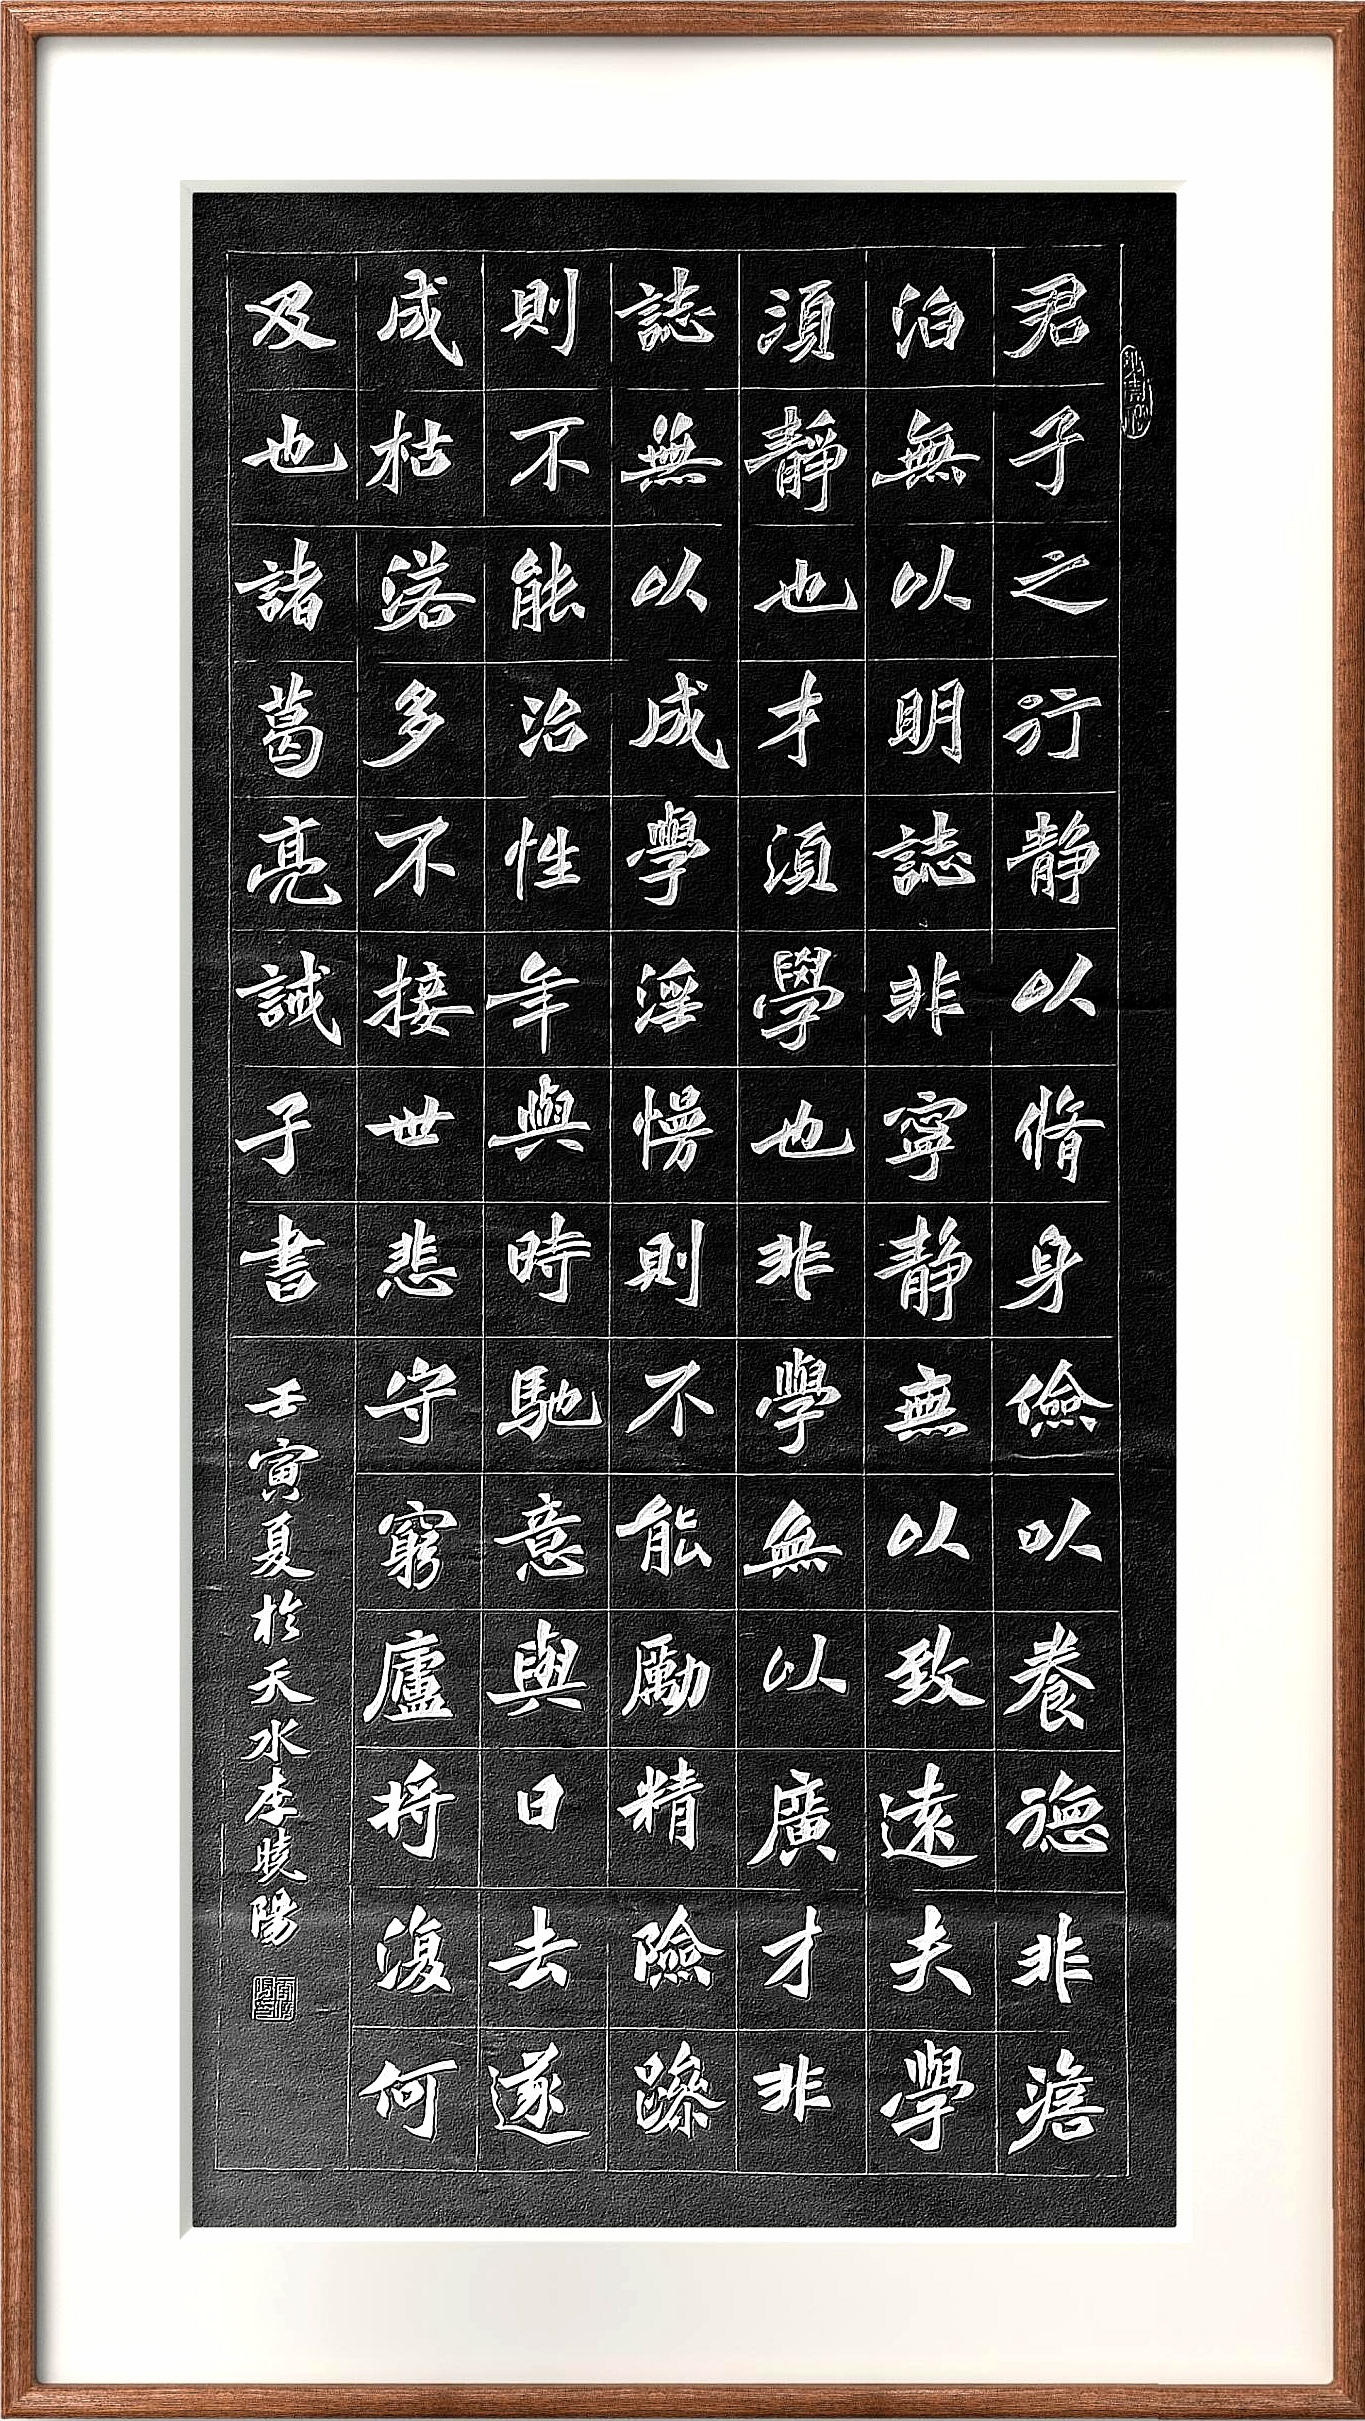 君子之行静以脩身儉以養德非澹
泊無以明誌非寧静無以致遠夫學
須靜也才須學也非學無以廣才非
誌無以成學淫慢則不能勵精險躁
則不能治性年與時馳意與日去遂
成枯落多不接世悲守窮廬将復何
及也諸葛亮誡子书
壬寅夏於天水李曉陽